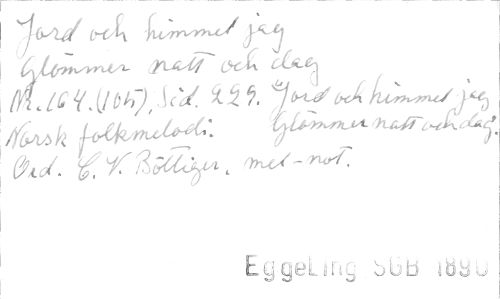 Jord och himmel jag
Glömmer natt och dag
Nr. 164. (105), Sid. 229. "Jord och himmel jag
Norsk folkmelodi. Glömmer natt och dag".
Ord. C. V. Böttiger, mel-not.
Eggeling SGB 1890